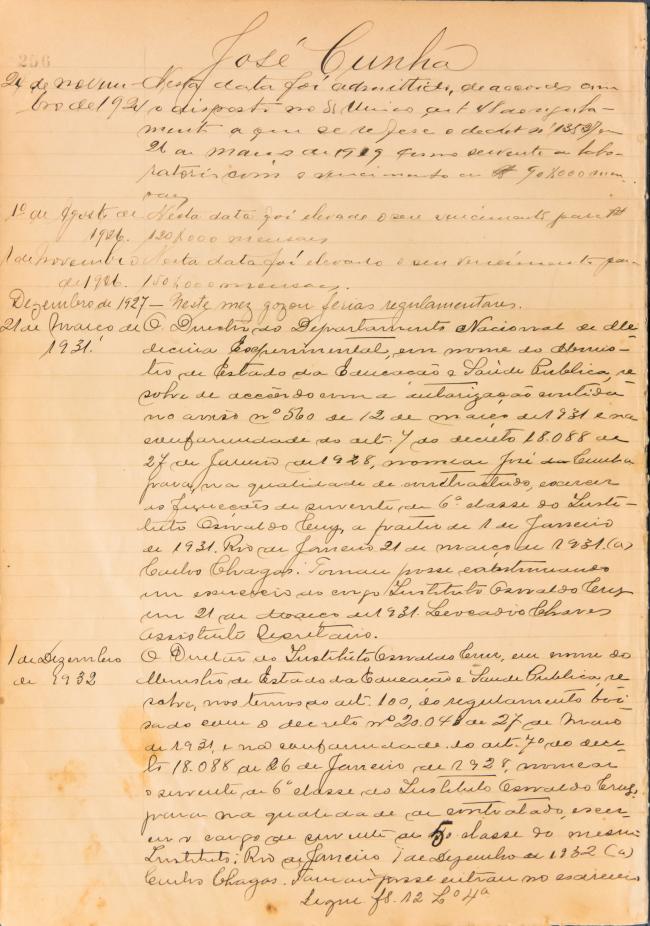 256
José Cunha
24 de novem- Nesta data foi admittido, de accordo com
bro de 192 o disposto no § Unico art. 48 do regula-
mento a que se refere o decreto nº 13527 de
26 de março de 1919 como servente de labo-
ratorio com o vencimento de 90$000 men-
saes
1º de Agosto de Nesta data foi elevado o seu vencimento para
1926. 120$000 mensaes
1 de novembro Nesta data foi elevado o seu vencimento para
de 1926. 150$000 mensaes.
Dezembro de 1927 – Neste mez gozou férias regulamentares.
21 de Março de O Director do Departamento Nacional de Me-
1931. dicina Experimental, em nome do Minis-
tro de Estado da Educação e Saúde Publica, re-
solve de accôrdo com a autorização contida
no aviso nº 560 de 12 de março de 1931 e na
conformidade do art. 7 do decréto 18.088 de
27 de Janeiro de 1928, nomear José da Cunha
para, na qualidade de contractado, exercer
as funcções de servente de 6ª classe do Insti-
tuto Oswaldo Cruz, a partir de 1 de Janeiro
de 1931. Rio de Janeiro 21 de março de 1931. (a)
Carlos Chagas. Tomou posse continuando
em exercicio do cargo Instituto Oswaldo Cruz
em 21 de Março de 1931. Leocadio Chaves
Assistente Secretario.
1 de Dezembro O Diretor do Instituto Oswaldo Cruz, em nome do
de 1932 Ministro de Estado da Educação e Saude Publica, re-
solve, nos termos do art. 100, do regulamento bai-
xado com o decreto nº 20.043 de 27 de Maio
de 1931, e na conformidade do art. 7º do decre-
to 18.088 de 26 de Janeiro de 1928, nomear
o servente de 6ª classe do Instituto Oswaldo Cruz,
para na qualidade de contratado, exer-
cer o cargo de servente de 5 classe do mesmo
Instituto. Rio de Janeiro 1 de Dezembro de 1932 (a)
Carlos Chagas. Tomou posse entrou no exercicio
Segue fs. 12 Lº 4º